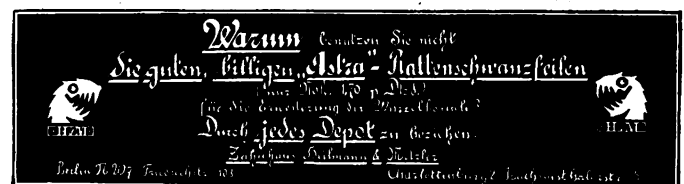 Warum benutzen Sie nicht
die guten, billigen „Astra"-Rattenschwanzfeilen
(nur Mk. 1,70 p. Dtzd.)
für die Erweiterung der Wurzelkanäle?
Durch jedes Depot zu beziehen.
HZM HZM
Zahnhaus Heilmann & Metzler
Berlin N 207 Friedrichstr. 103 Charlottenburg 2